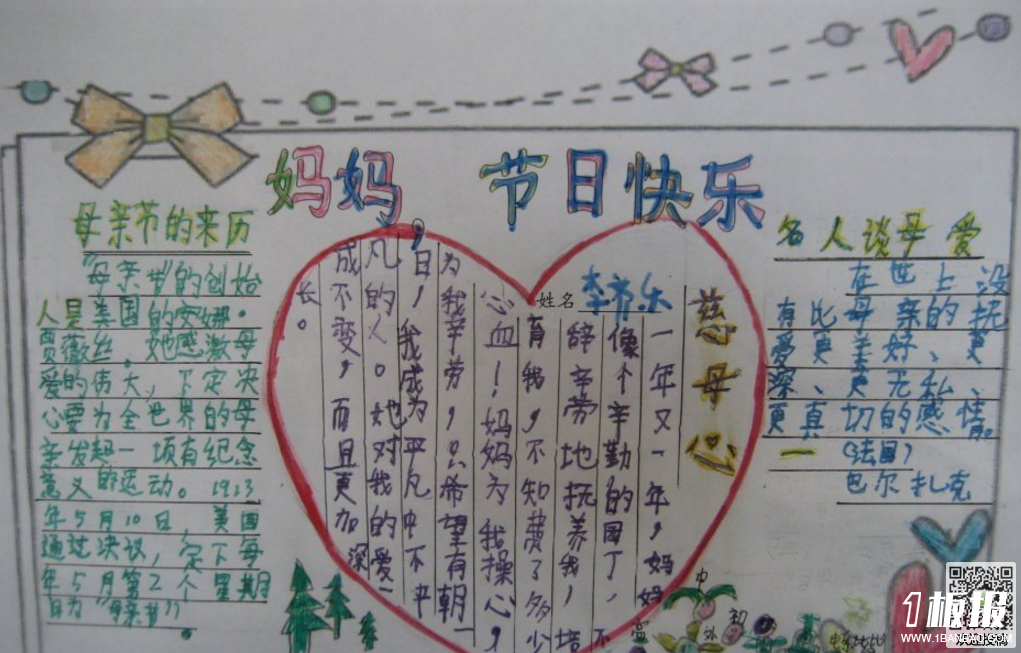 妈妈，节日快乐
母亲节的来历
“母亲节”的创始
人是美国的安娜·
贾薇丝。她感激母
爱的伟大，下定决
心要为全世界的母
亲发起一项有纪念
意义的运动。1913
年5月10日，美国
通过决议，定下每
年5月第2个星期
日为“母亲节”。
姓名
慈母心
一年又一年，妈妈
像个辛勤的园丁，不
辞辛劳地抚养我，培
育我，不知费了多少
心血！妈妈为我操心，
为我辛劳，只希望有朝一
日，我成为平凡中不平
凡的人。她对我的爱一
成不变，而且更加深
长。
名人谈母爱
在世上没
有比母亲的抚
爱更美好、更
深、更无私、
更真切的感情。
一（法国）
巴尔扎克
1板报
WWW.1BANBAO.COM
欢迎投稿